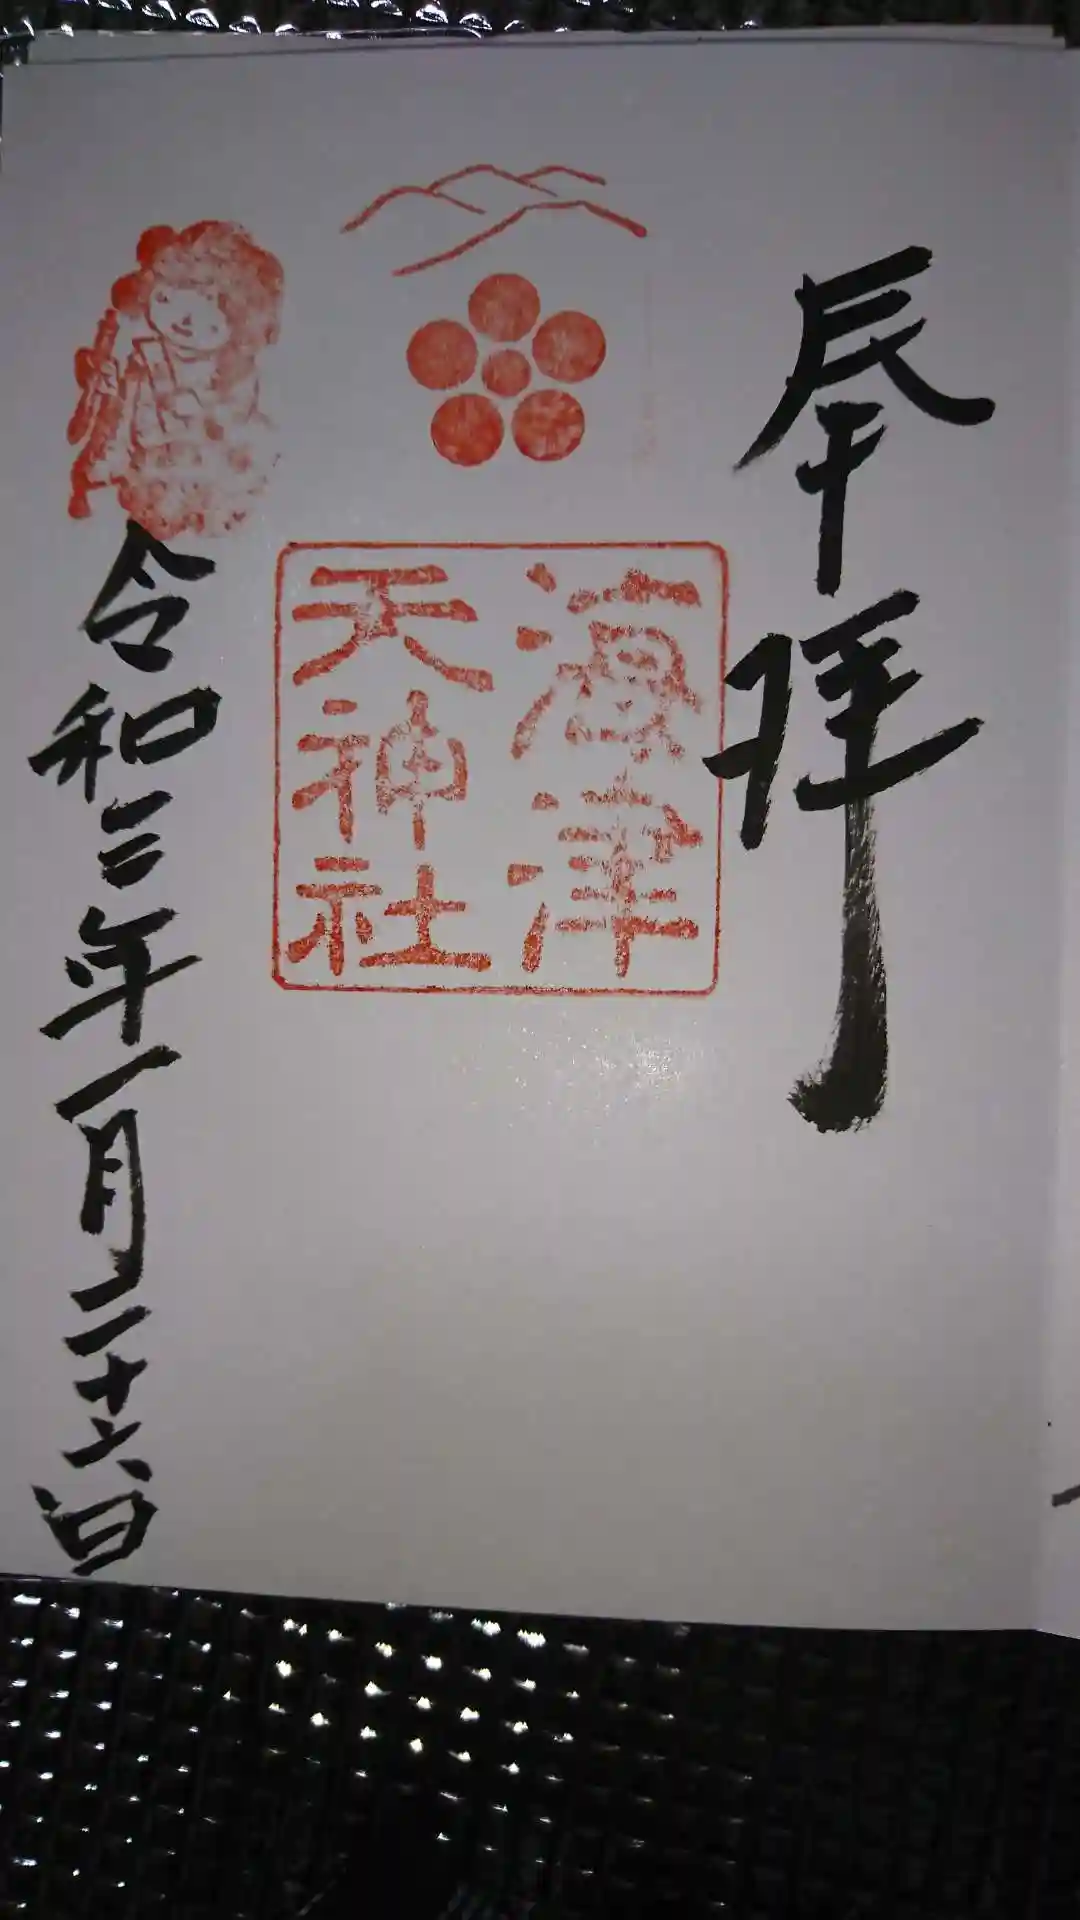 奉拝
海津
天神社
令和三年一月二十六日